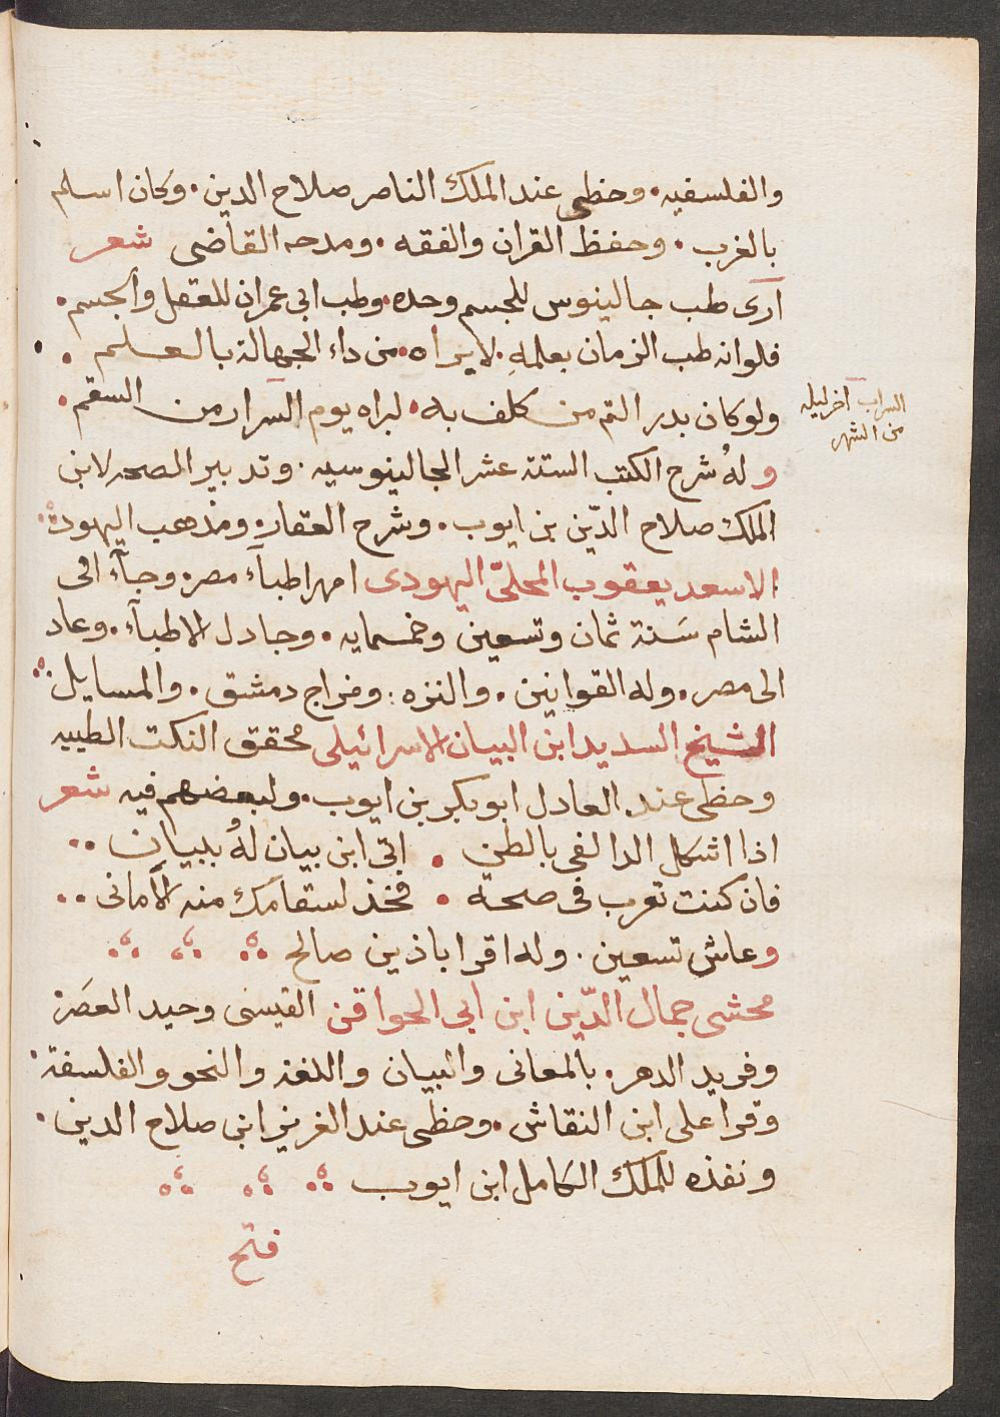 والفلسفيه • وحظى عند الملك الناصر صلاح الدين • وكان اسلم
بالغرب • وحفظ القران والفقه • ومدحه القاضى شعر
ارى طب جالينوس للجسم وحده • وطب ابى عمران للعقل والجسم •
فلوانه طب الزمان بعلمهِ • لابراه • من داء الجهالة بالعلم •
ولوكان بدر التم من كلف به • لبراه يوم السرار من السقم •
السراب اخر ليله
من الشهر
ولهُ شرح الكتب الستة عشر الجالينوسيه • وتدبير الصحه لابن
الملك صلاح الدّين بن ايوب • وشرح العقار • ومذهب اليهود
الاسعد يعقوب المحلىّ اليهودى امهر اطبآء مصر • وجآء الى
الشام سَنة ثمان وتسعين وخمسمايه • وجادل الاطبآء • وعاد
الى مصر • وله القوانين • والنزه • ومزاج دمشق • والمسايل
الشيخ السديد ابن البيان الاسرائيلى محقق النكت الطبيه
وحظى عند العادل ابوبكر بن ايوب • ولبعضهم فيه شعر
اذا اشكل الدا لفى بالطن • اتى ابن بيان لهُ ببيان
فان كنت ترغب فى صحة • فخذ لسقامك منه الامانى
وعاش تسعين • وله اقراباذين صالح
محشى جمال الدّين ابن ابى الحوافر القيسى وحيد العصَر
وفريد الدهر • بالمعانى والبيان واللغة والنحو والفلسفة •
وقرا على ابن النقاش • وحظى عند العزيز ابن صلاح الدين •
ونفذه للملك الكامل ابن ايوب
فتح